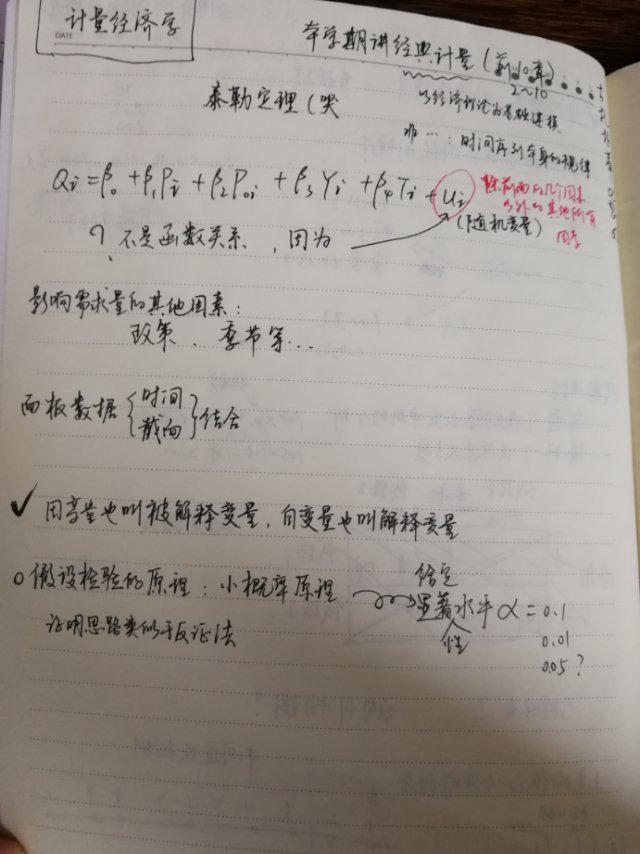 计量经济学
DATE
本学期讲经典计量(前10章)
2~10
泰勒定理(哭
以经济理论为基础建模
非…:时间序列本身的规律
Qi = β0 + β1Pi + β2P0i + β3Yi + β4Ti + Ui
(随机变量)
除前面的几个因素
以外的其他所有
因素
不是函数关系,因为
影响需求量的其他因素:
政策、季节等...
面板数据{时间 截面}结合
✓ 因变量也叫被解释变量,自变量也叫解释变量
○假设检验的原理:小概率原理
给定
显著水平 α = 0.1
性
0.01
0.05?
证明思路类似于反证法